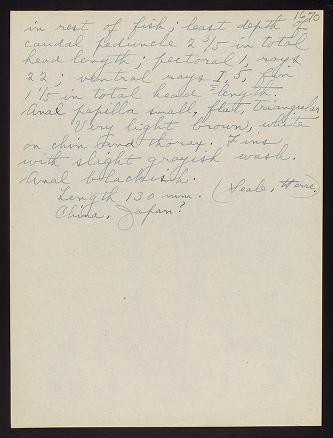 1670
in rest of fish; least depth of
caudal peduncle 2 3/5 in total
head length; pectoral 1, rays
22; ventral rays I, 5, fin
1 1/5 in total head length.
Anal papilla small, flat, triangular.
Very light brown, white
on chin and thorax. Fins
with slight grayish wash.
Anal blackish.
Length 130 mm. (Seale, Herre.
China, Japan?